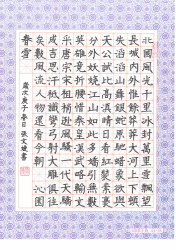 北國風光千里冰封萬里雪飄望
長城內外惟餘莽莽大河上下頓
失滔滔山舞銀蛇原馳蠟象欲與
天公試比高須晴日看紅裝素裹
分外妖嬈江山如此多嬌引無數
英雄競折腰惜秦皇漢武略輸文
采唐宗宋祖稍遜風騷一代天驕
成吉思汗祇識彎弓射大雕俱往
矣數風流人物還看今朝 沁園
春雪 歲次庚子春日 張文書